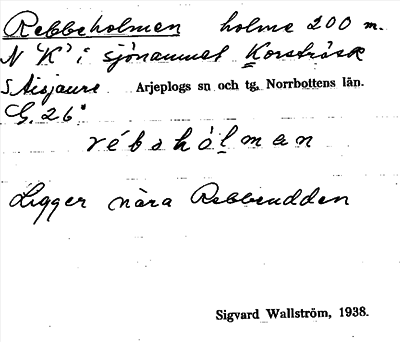 Rebbeholmen holme 200 m.
N "K" i sjönamnet Korsträsk
S Aisjaure Arjeplogs sn och tg. Norrbottens län.
G. 26
rébahòlman
Ligger nära Rebbeudden
Sigvard Wallström, 1938.